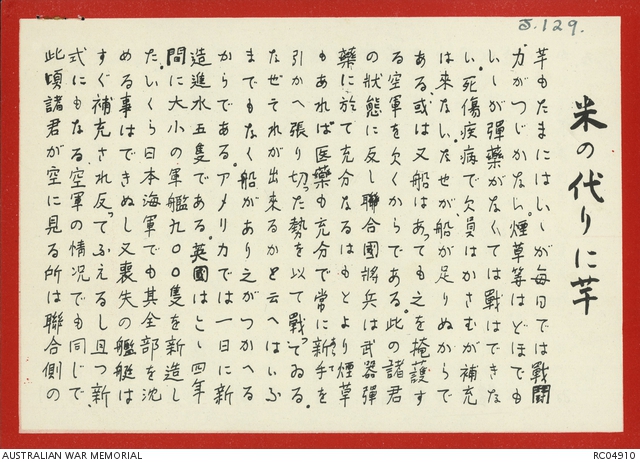 J.129.
米の代りに芋
芋もたまにはいゝが每日では戰鬪
力がつゞかない。煙草等はどほでも
いゝが彈藥がなくては戰はできな
い。死傷疾病で欠員はかさむが補充
は来ない。なぜか船が足りぬからで
ある。或は又船はあっても之を掩護す
る空軍を欠くからである。此の諸君
の狀態に反し聯合國將兵は武器彈
藥に於て充分なるはもとより煙草
もあれば医藥も充分で常に新手を
引かへ張り切った勢を以て戰ってゐる。
なぜそれが出来るかと云へはいふ
までもなく船があり之がつかへる
からである。アメリカでは一日に新
造進水五隻である。英國はこゝ四年
間に大小の軍艦九〇〇隻を新造し
た。いくら日本海軍でも其全部を沈
める事はできぬし又喪失の艦艇は
すぐ補充され反ってふえるし且つ新
式にもなる。空軍の情况でも同じで
此頃諸君が空に見る所は聯合側の
AUSTRALIAN WAR MEMORIAL
RC04910